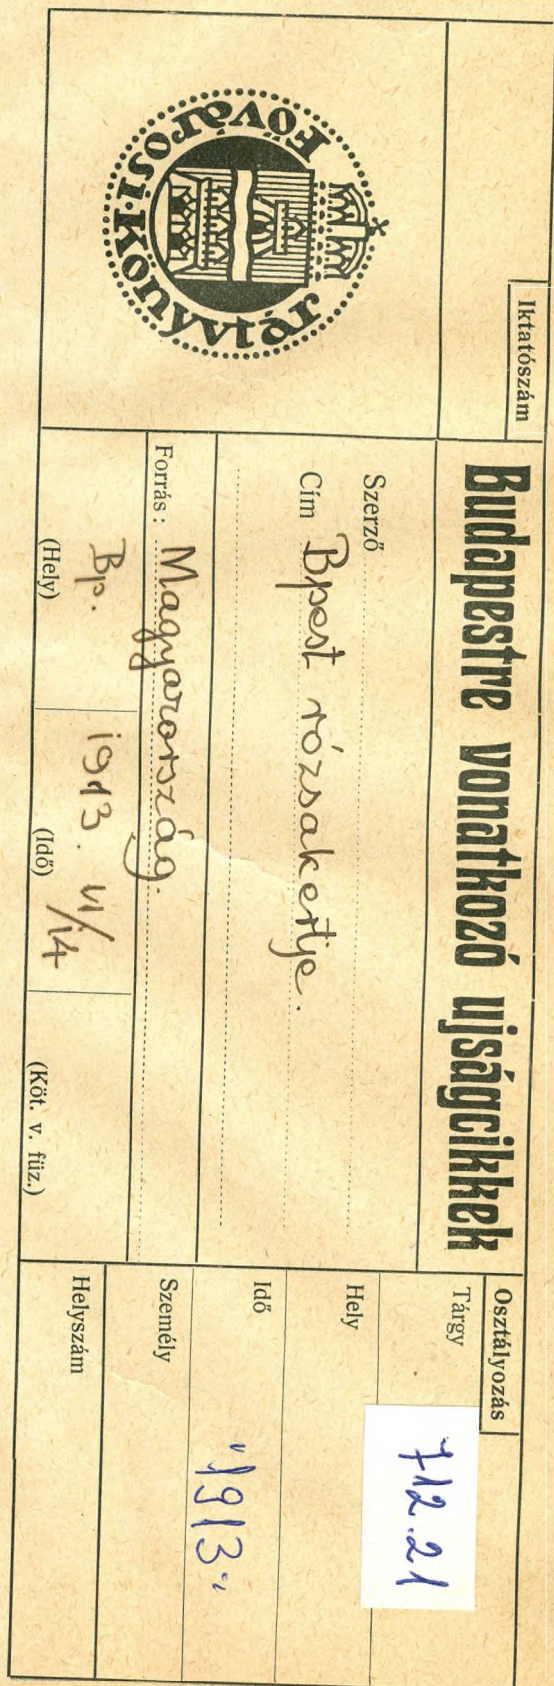 Iktatószám
Fővárosi·Könyvtár
Budapestre vonatkozó ujságcikkek
Szerző
Cím Bpest rózsakertje.
Forrás: Magyarország.
Bp. 1913. VI/14
(Hely) (Idő) (Köt. v. füz.)
Osztályozás
Tárgy 712.21
Hely
Idő "1913"
Személy
Helyszám